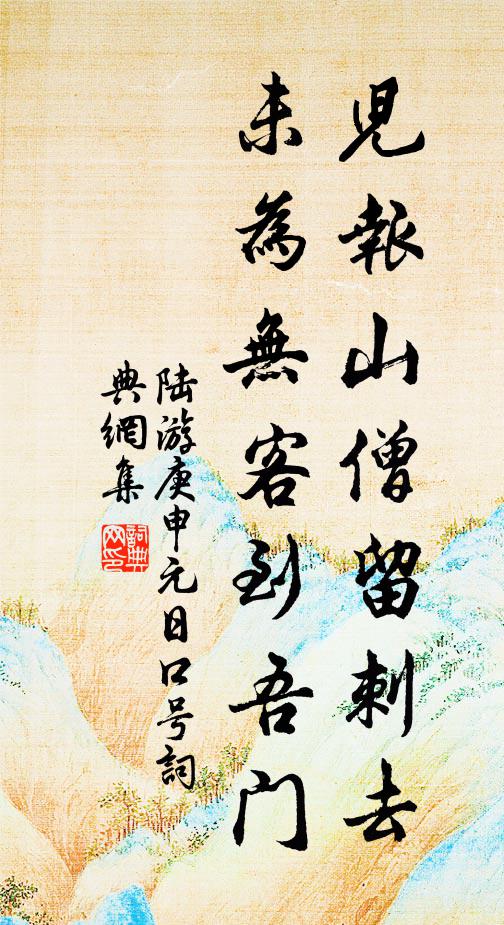 児報山僧留刺去
未為無客到吾門
陆游庚申元日口号詞
典網集
詞典
网印